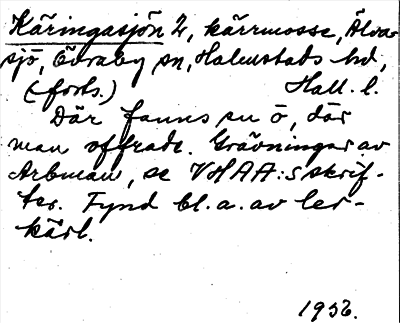 Käringasjön 2, kärrmosse, Älva-
sjö, Övraby sn, Halmstads hd,
(-forts.) Hall. l.
Där fanns en ö, där
man offrade. Grävningar av
Arbman, se VHAA:s skrif-
ter. Fynd bl.a. av ler-
kärl.
1956.